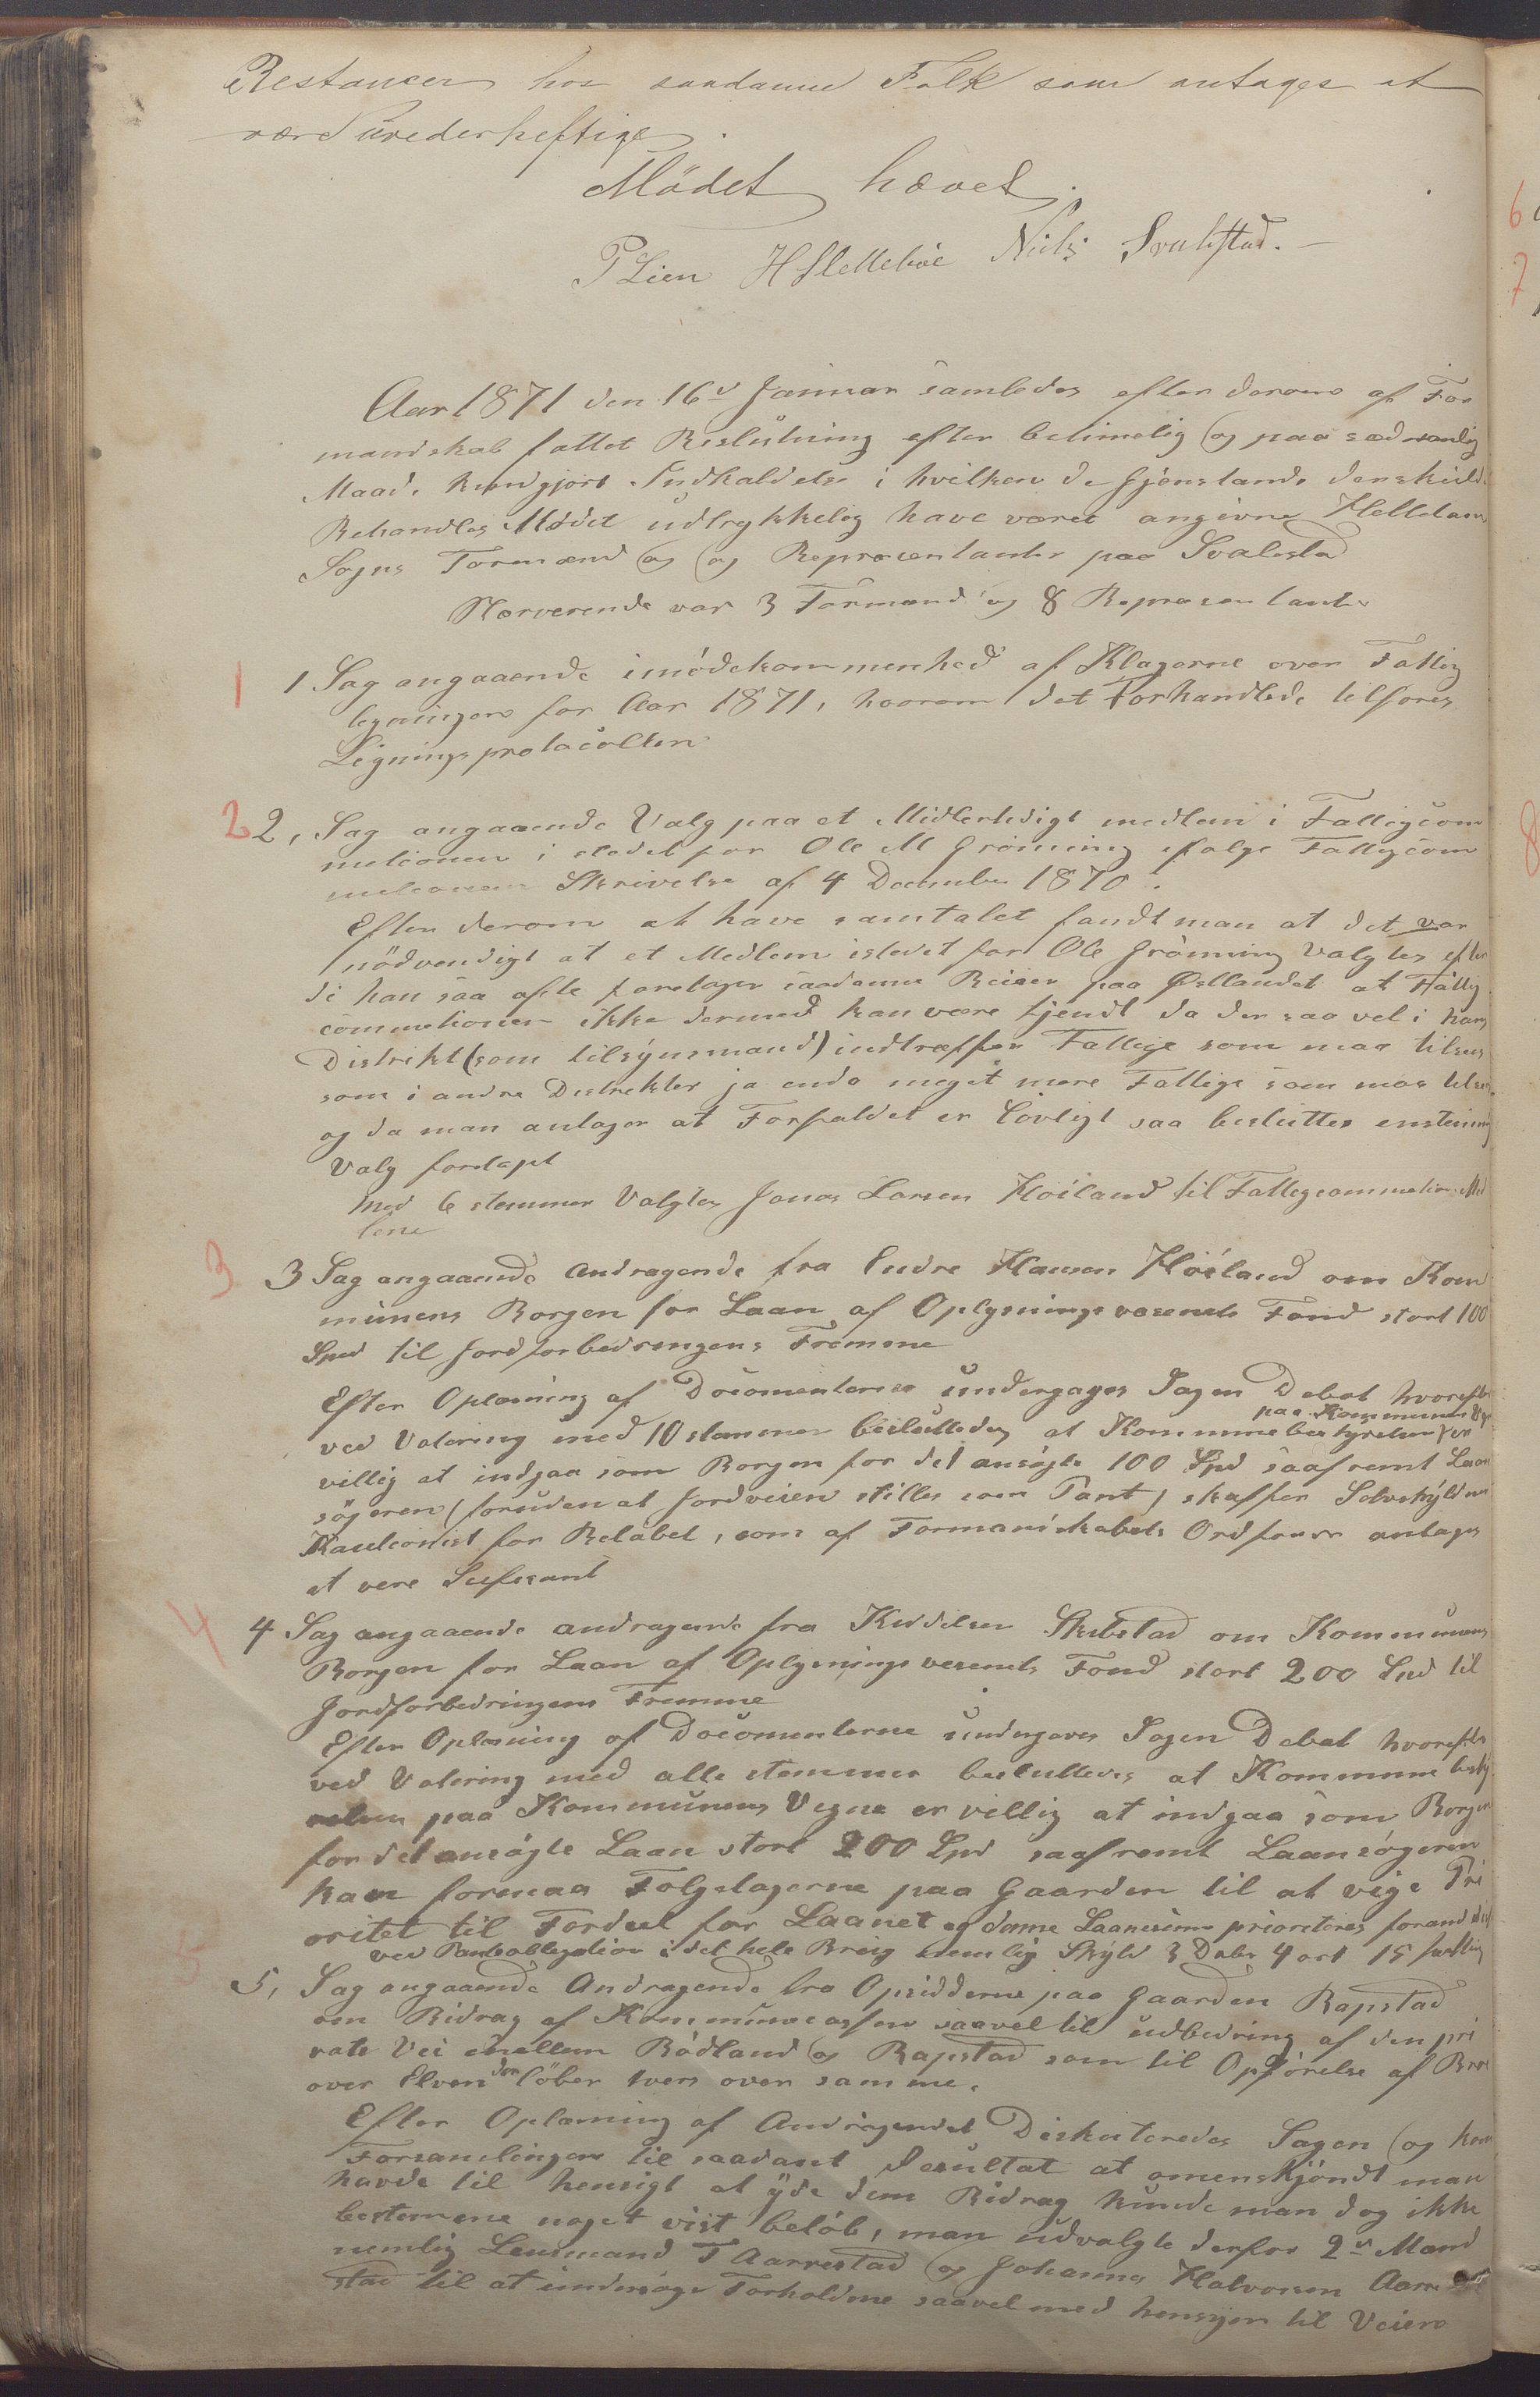 Restancer hos saadanne Folk som antages at
være Uvederheftige.
Mödet hævet.
P Lien H Slettebøe Niels Svalestad.
Aar 1871 den 16d Januar samledes efter derom af For
mandskab fattet Beslutning efter betimelig og paa sædvanlig
Maade kundgjort Indkaldelse i hvilken de Gjenstande
Behandles Mödet udtrykkelig have været angivne Helleland
Sogns Formænd og og Repræsentanter paa Svalestad
Nærverende var 3 Formænd og 8 Repræsentanter
1 1 Sag angaaende imödekommenhed af Klagerne over Fattig
ligningen for Aar 1871, hvorom det Forhandlede tilføres
Ligningsprotocollen
2 2, Sag angaaende Valg paa et Midlertidigt medlem i Fattigcom
mitionen i stedet for Ole M Grönning ifølge Fattigcom
Skrivelse af 4 December 1870.
Efter derom at have samtalet fandt man at det var
nödvendigt at et Medlem istedet for Ole Grönning Valgtes efter
di han saa ofte foretager saadanne Reiser paa Østlandet at Fattig
commitionen ikke dermed kan være tjendt da der saa vel i hans
Distrikt (som tilsynsmand) indtræffer Fattige som maa tilsees
som i andre Distrikter ja enda meget mere Fattige som maa tilsees
og da man antager at Forfaldet er lovligt saa besluttes enstemmig
Valg foretaget
Med 6 stemmer Valgtes Jonas Larsen Höiland til Fattigcommetion Med
lem
3 3 Sag angaaende Andragende fra Endre Hansen Höiland om Kom
munens Borgen for Laan af Oplysningsvæsenets Fond stort 100
Spd til Jordforbedringens Fremme
Efter Oplæsning af Documenterne undergaves Sagen Debat hvorefter
paa Kommunens Vegne
ved Votering med 10 stemmer besluttedes at Kommunebestyrelsen er
villig at indgaa som Borgen for det ansøgte 100 Spd saafremt Laan
søgeren (foruden at Jordveien stilles som Pant) skaffer Selvskyldner
Kautionist for Beløbet, som af Formandskabets Ordfører antages
at vere Suffesant
4 4 Sag angaaende andragende fra Kiddelsen Skibstad om Kommunens
Borgen for Laan af Oplysningsvesenets Fond stort 200 Spd til
Jordforbedringens Fremme
Efter Oplæsning af Documenterne undergaves Sagen Debat hvorefter
ved Votering med alle stemmer besluttedes at Kommune besty
relsen paa Kommunens Vegne er villig at indgaa som Borgen
for det ansøgte Laan stort 200 Spd saafremt Laansøgeren
kan formaa Folgetagerne paa Gaarden til at vige Pri
oritet til Fordeel for Laanet og denne Laanesum prioriteres
ved Panteobligation i det hele Brug nemlig Skyld 3 Daler 4 ort 15 skilling
5 5, Sag angaaende Andragende fra Opsidderne paa Gaarden Rapstad
om Bidrag af Kommunecassen saavel til udbedring af den pri
vate Vei mellem Bödland og Rapstad som til Opførelse af Bro
over Elven der löber tvers over samme.
Efter Oplæsning af Andragendet Diskuteredes Sagen og kom
Forsamlingen til saadant Resultat at omenskjöndt man
havde til hensigt at yde dem Bidrag kunde man dog ikke
bestemme noget vist beløb, man udvalgte derfor 2de Mænd
nemlig Lensmand T Aarrestad og Johannes Halvorsen Aarre
stad til at undersöge Forholdene saavel med hensyn til Veiens